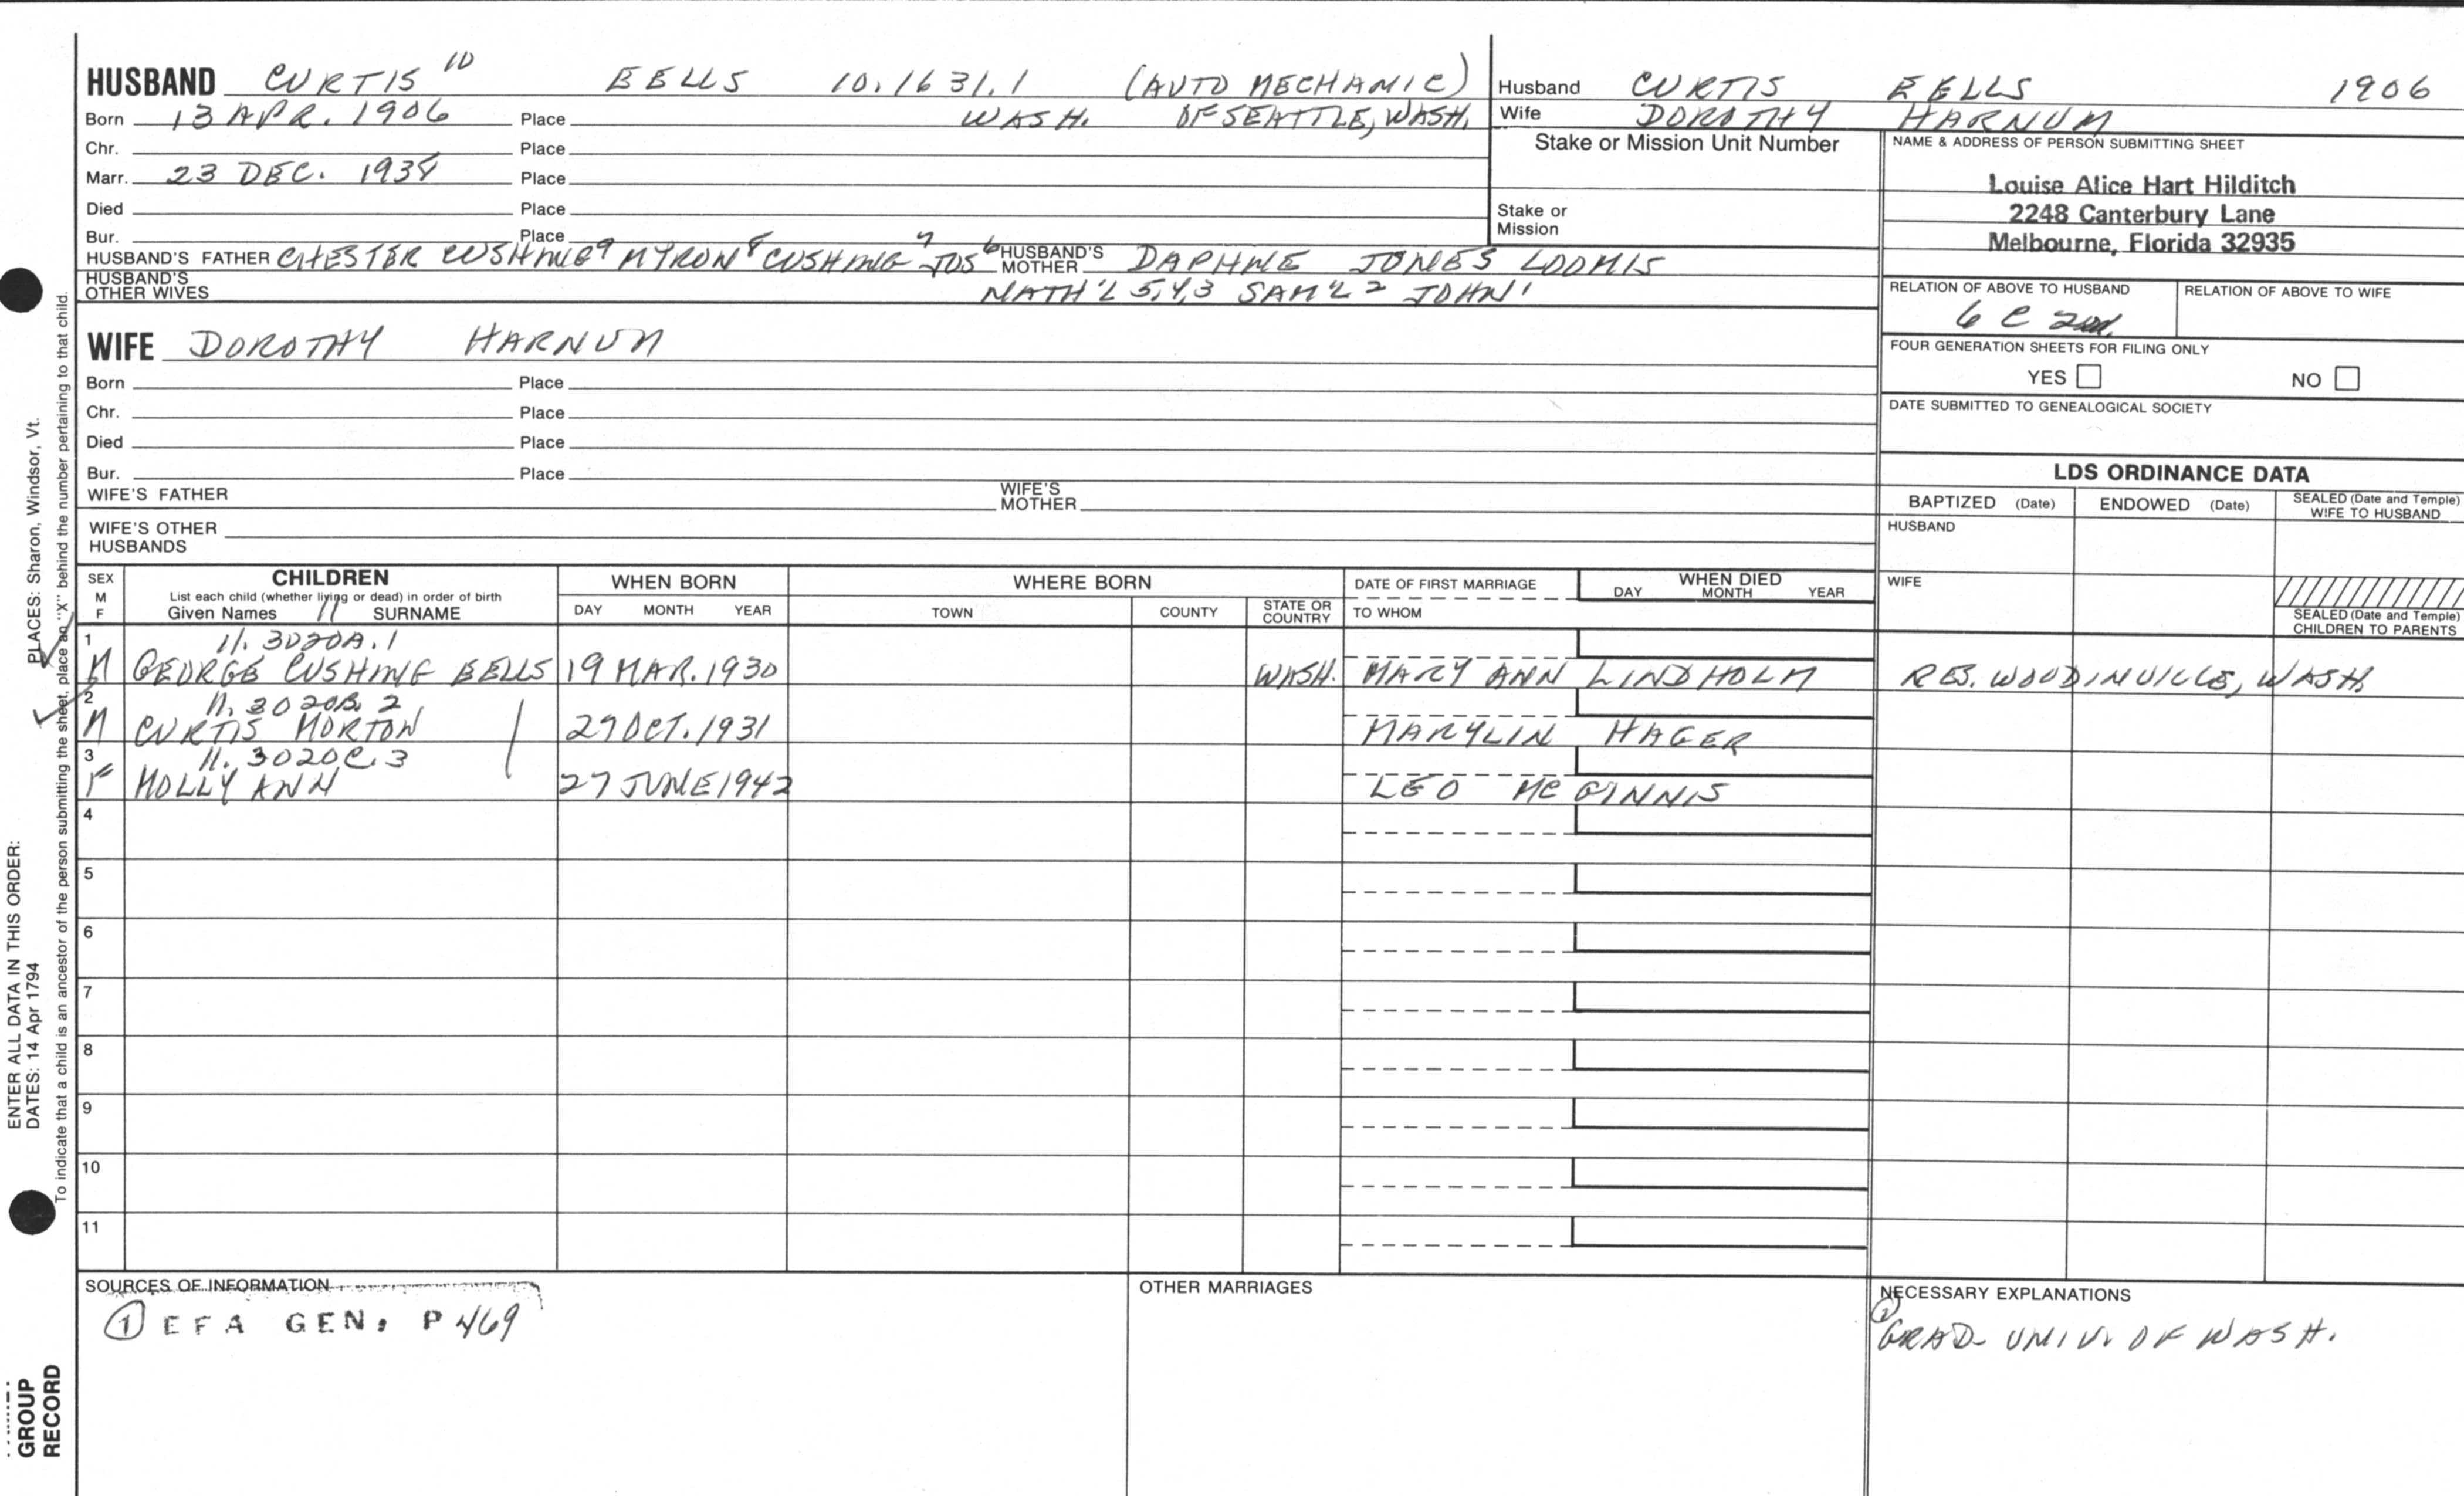 HUSBAND CURTIS 10 EELLS 10.1631.1 (AUTO MECHANIC)
Born 13 APR. 1906 Place WASH. OF SEATTLE, WASH.
Chr. Place
Marr. 23 DEC. Place
Died Place
Bur. Place
HUSBAND'S FATHER CHESTER CUSHING 9 MYRON 8 CUSHING 7 JOS 6 HUSBAND'S MOTHER DAPHNE JONES LOOMIS
HUSBAND'S OTHER WIVES NATH'L 5,4,3 SAM'L 2 JOHN 1
WIFE DOROTHY HARNUM
Born Place
Chr. Place
Died Place
Bur. Place
WIFE'S FATHER WIFE'S MOTHER
WIFE'S OTHER HUSBANDS
Husband CURTIS EELLS 1906
Wife DOROTHY HARNUM
Stake or Mission Unit Number
Stake or
Mission
NAME & ADDRESS OF PERSON SUBMITTING SHEET
Louise Alice Hart Hilditch
2248 Canterbury Lane
Melbourne, Florida 32935
RELATION OF ABOVE TO HUSBAND RELATION OF ABOVE TO WIFE
6 C
FOUR GENERATION SHEETS FOR FILING ONLY
YES NO
DATE SUBMITTED TO GENEALOGICAL SOCIETY
LDS ORDINANCE DATA
BAPTIZED (Date) ENDOWED (Date) SEALED (Date and Temple) WIFE TO HUSBAND
HUSBAND
WIFE
SEALED (Date and Temple)
CHILDREN TO PARENTS
SEX M F CHILDREN WHEN BORN WHERE BORN DATE OF FIRST MARRIAGE WHEN DIED
List each child (whether living or dead) in order of birth
Given Names 11 SURNAME DAY MONTH YEAR TOWN COUNTY STATE OR COUNTRY TO WHOM DAY MONTH YEAR
1 11.3020A.1
M GEORGE CUSHING EELLS 19 MAR. 1930 WASH. MARY ANN LINDHOLM RES. WOODINVILLE, WASH.
2 11.3020B.2
M CURTIS MORTON 29 OCT. 1931 MARYLIN HAGER
3 11.3020C.3
F MOLLY ANN 27 JUNE 1942 LEO McGINNIS
4
5
6
7
8
9
10
11
SOURCES OF INFORMATION OTHER MARRIAGES NECESSARY EXPLANATIONS
1 EFA GEN. P 469
GRAD UNIV. OF WASH.
ENTER ALL DATA IN THIS ORDER:
DATES: 14 Apr 1794 PLACES: Sharon, Windsor, Vt.
To indicate that a child is an ancestor of the person submitting the sheet, place an "X" behind the number pertaining to that child.
GROUP
RECORD